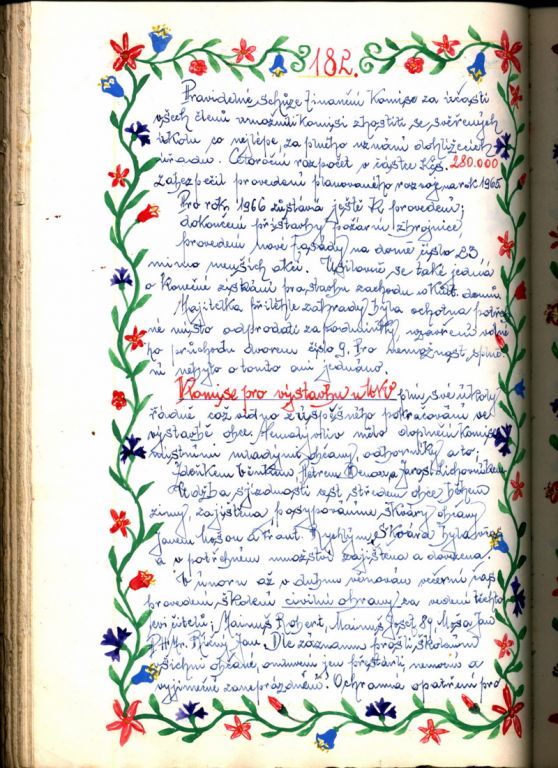 182.
Pravidelné schůze finanční komise za účasti
všech členů umožnili komisi zhostiti se svěřených
úkolů co nejlépe, za plného uznání dohlížecích
úřadů. Celoroční rozpočet v částce Kčs. 280.000
zabezpečil provedení plánovaného rozvoje na rok 1965
Pro rok 1966 zůstává ještě k provedení;
dokončení přístavby požární zbrojnice,
provedení nové fasády na domě číslo 23
mimo menších akcí. Usilovně se také jedná
o konečné získání pro stavbu zachodu u Kult. domu
Majitelka přilehlé zahrady byla ochotna potřeb
né místo odprodati za podmínky, uzavření volné
ho průchodu dvorem číslo 9. Pro nemožnost splně
ní nebylo o tomto ani jednáno.
Komise pro výstavbu u MNV plní své úkoly
řádně což vidno z úspěšného pokračování ve
výstavbě obce. Nemalý vliv mělo doplnění komise
místními mladými občany, odborníky a to;
Zdeňkem Petrem a Jarosl.
Údržba sjízdnosti cest středem obce během
zimy, zajištěna posypováním škváry občany
Janem a Frant. Rychlým, Škvára byla včas
a v potřebném množství zajištěna a dovezena.
V únoru až v dubnu věnován večerní čas
provedení školení civilní obrany za vedení těchto
Mainuš Robert, Mainuš Josef 89 Mosa Jan
Jan. Dle záznamu prošli školením
všichni občané, omluveni jen přestárlí nemocní a
vyjímečně zaneprázdnění. Ochranná opatření pro